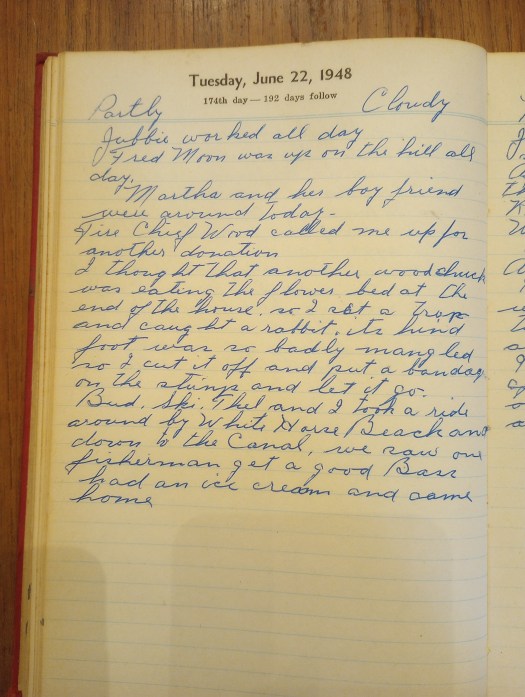 Tuesday, June 22, 1948
174th day — 192 days follow
Partly Cloudy
Jubbie worked all day
Fred Moon was up on the hill all
day.
Martha and her boy friend
were around today.
Fire Chief Wood called me up for
another donation
I thought that another woodchuck
was eating the flower bed at the
end of the house. so I set a trap
and caught a rabbit, its hind
foot was so badly mangled
so I cut it off and put a bandag
on the stump and let it go.
Bud, Ski, Thel and I took a ride
around by White Horse Beach and
down to the Canal, we saw one
fisherman get a good Bass
had an ice cream and came
home